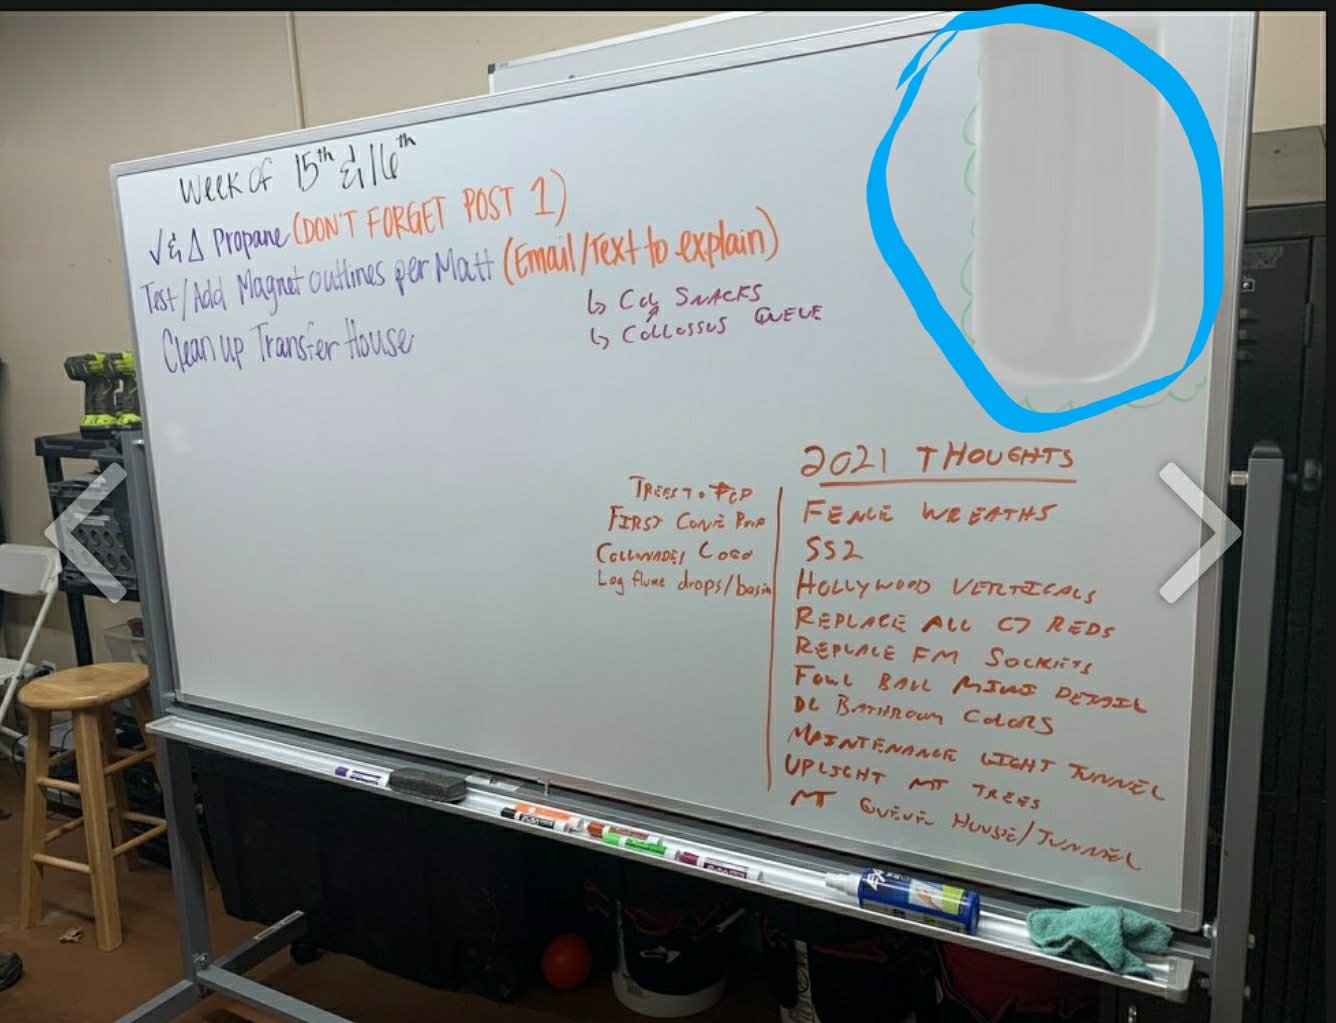 Week of 15th & 16th
√ & Δ Propane (DON'T FORGET POST 1)
Test/Add Magnet outlines per Matt (Email/Text to explain)
↳ CCI SNACKS
↳ COLLOSSUS QUEUE
Clean up Transfer House
2021 THOUGHTS
TREES
FIRST
LOGO
Log flume drops/basin
FENCE WREATHS
SS2
HOLLYWOOD VERTICALS
REPLACE ALL C7 REDS
REPLACE FM SOCKETS
FOWL BALL MINI DETAIL
DL BATHROOM COLORS
MAINTENANCE LIGHT TUNNEL
UPLIGHT MT TREES
MT QUEUE HOUSE/TUNNEL